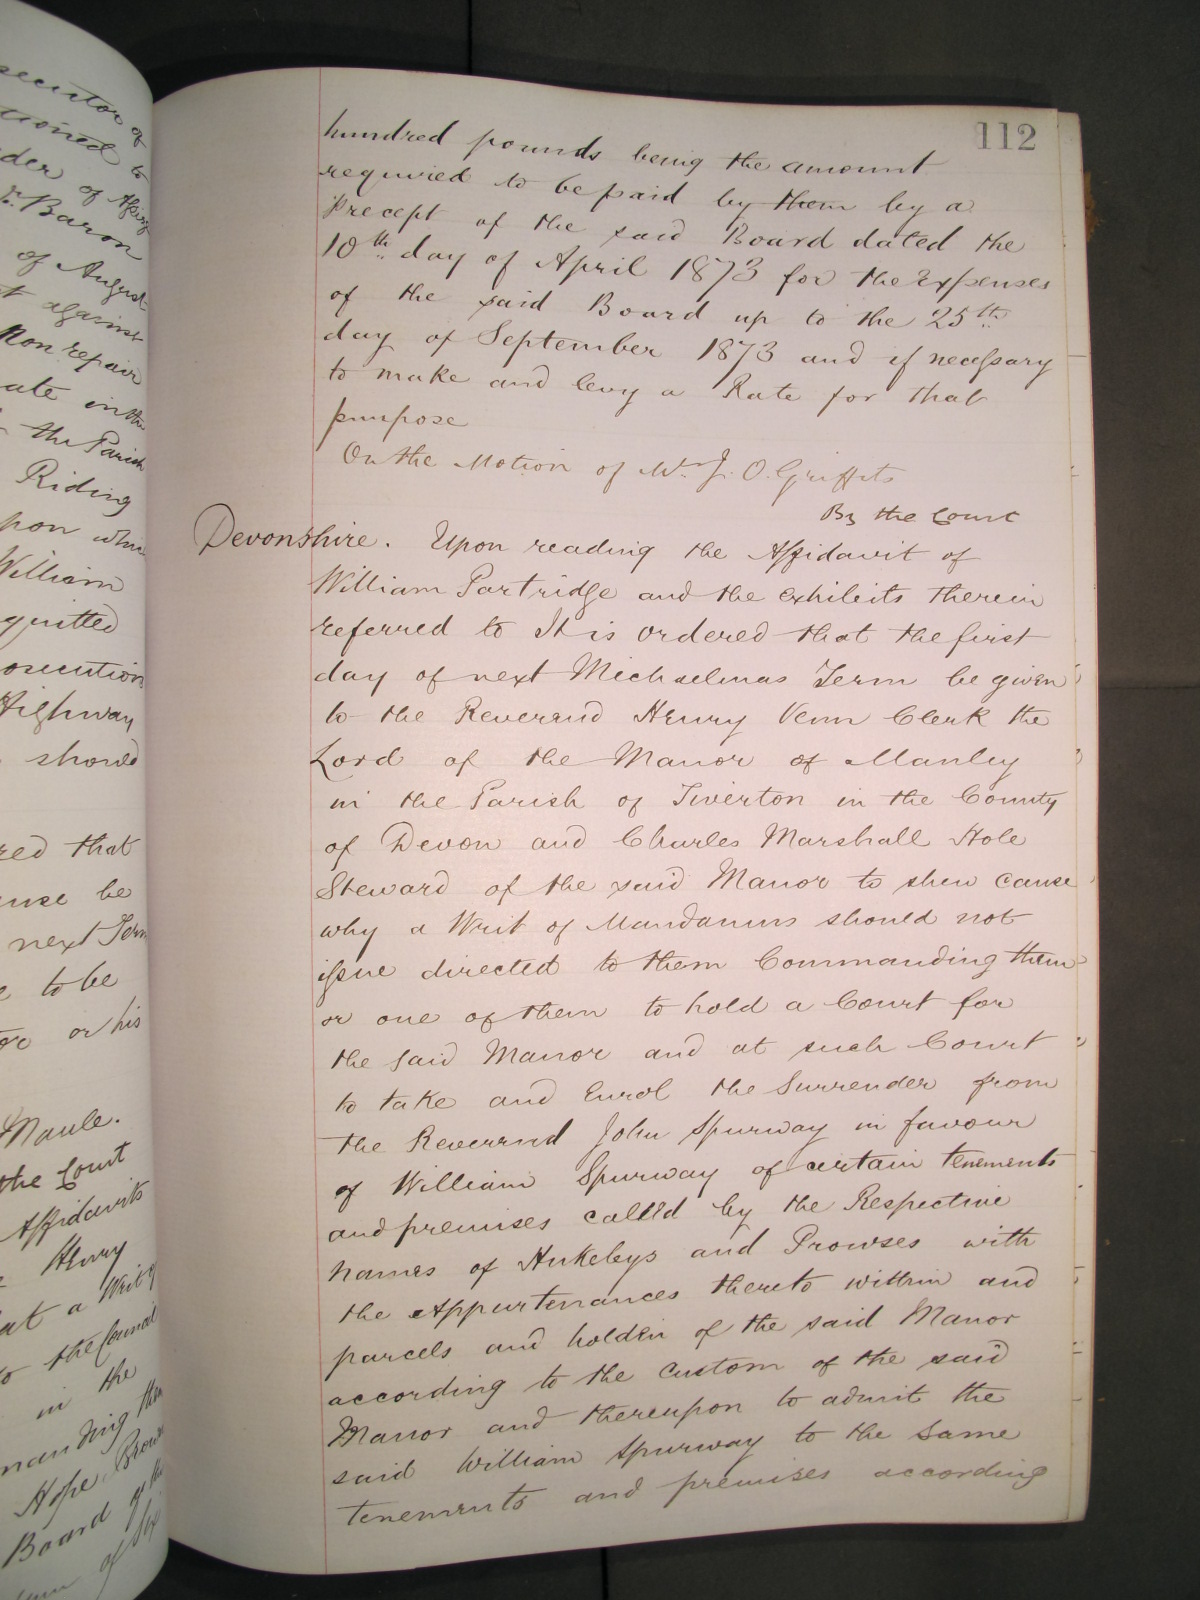 112
hundred pounds being the amount
required to be paid by them by a
Precept of the said Board dated the
10th day of April 1873 for the Expenses
of the said Board up to the 25th
day of September 1873 and if necessary
to make and levy a Rate for that
purpose
On the Motion of Mr. J. O. Griffits
By the Court
Devonshire. Upon reading the Affidavit of
William Partridge and the exhibits therein
referred to It is ordered that the first
day of next Michaelmas Term be given
to the Reverend Henry Venn Clerk the
Lord of the Manor of Manley
in the Parish of Tiverton in the County
of Devon and Charles Marshall Hole
Steward of the said Manor to shew cause
why a Writ of Mandamus should not
issue directed to them Commanding them
or one of them to hold a Court for
the said Manor and at such Court
to take and Enrol the Surrender from
the Reverend John Spurway in favour
of William Spurway of certain tenements
and premises called by the Respective
names of Ankeleys and Prowses with
the Appurtenances thereto within and
parcels and holden of the said Manor
according to the Custom of the said
Manor and thereupon to admit the
said William Spurway to the same
tenements and premises according
secutor of
tioned to
der of
Baron
of August
t against
Non repair
ate in the
the Parish
Riding
pon whi
William
quitted
osecution
Highway
should
red that
use be
next Term
to be
or his
Maule.
the Court
Affidavits
Henry
at a Writ of
to the Council
in the
manding them
Hope Brown
Board of the